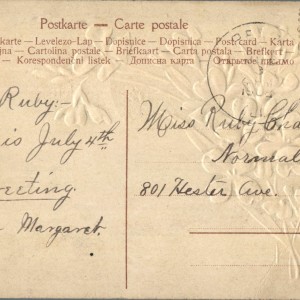 Postkarte — Carte postale
karte — Levelezo-Lap — Dopisnice — Dopisnica — Post card — Karta
jna — Cartolina postale — Briefkaart — Carta postala — Brefkort
— Korespondenční listek — Дописна карта — Открытое письмо
Ruby:-
is July 4th
Margaret.
Miss Ruby
Normal
801 Hester Ave.